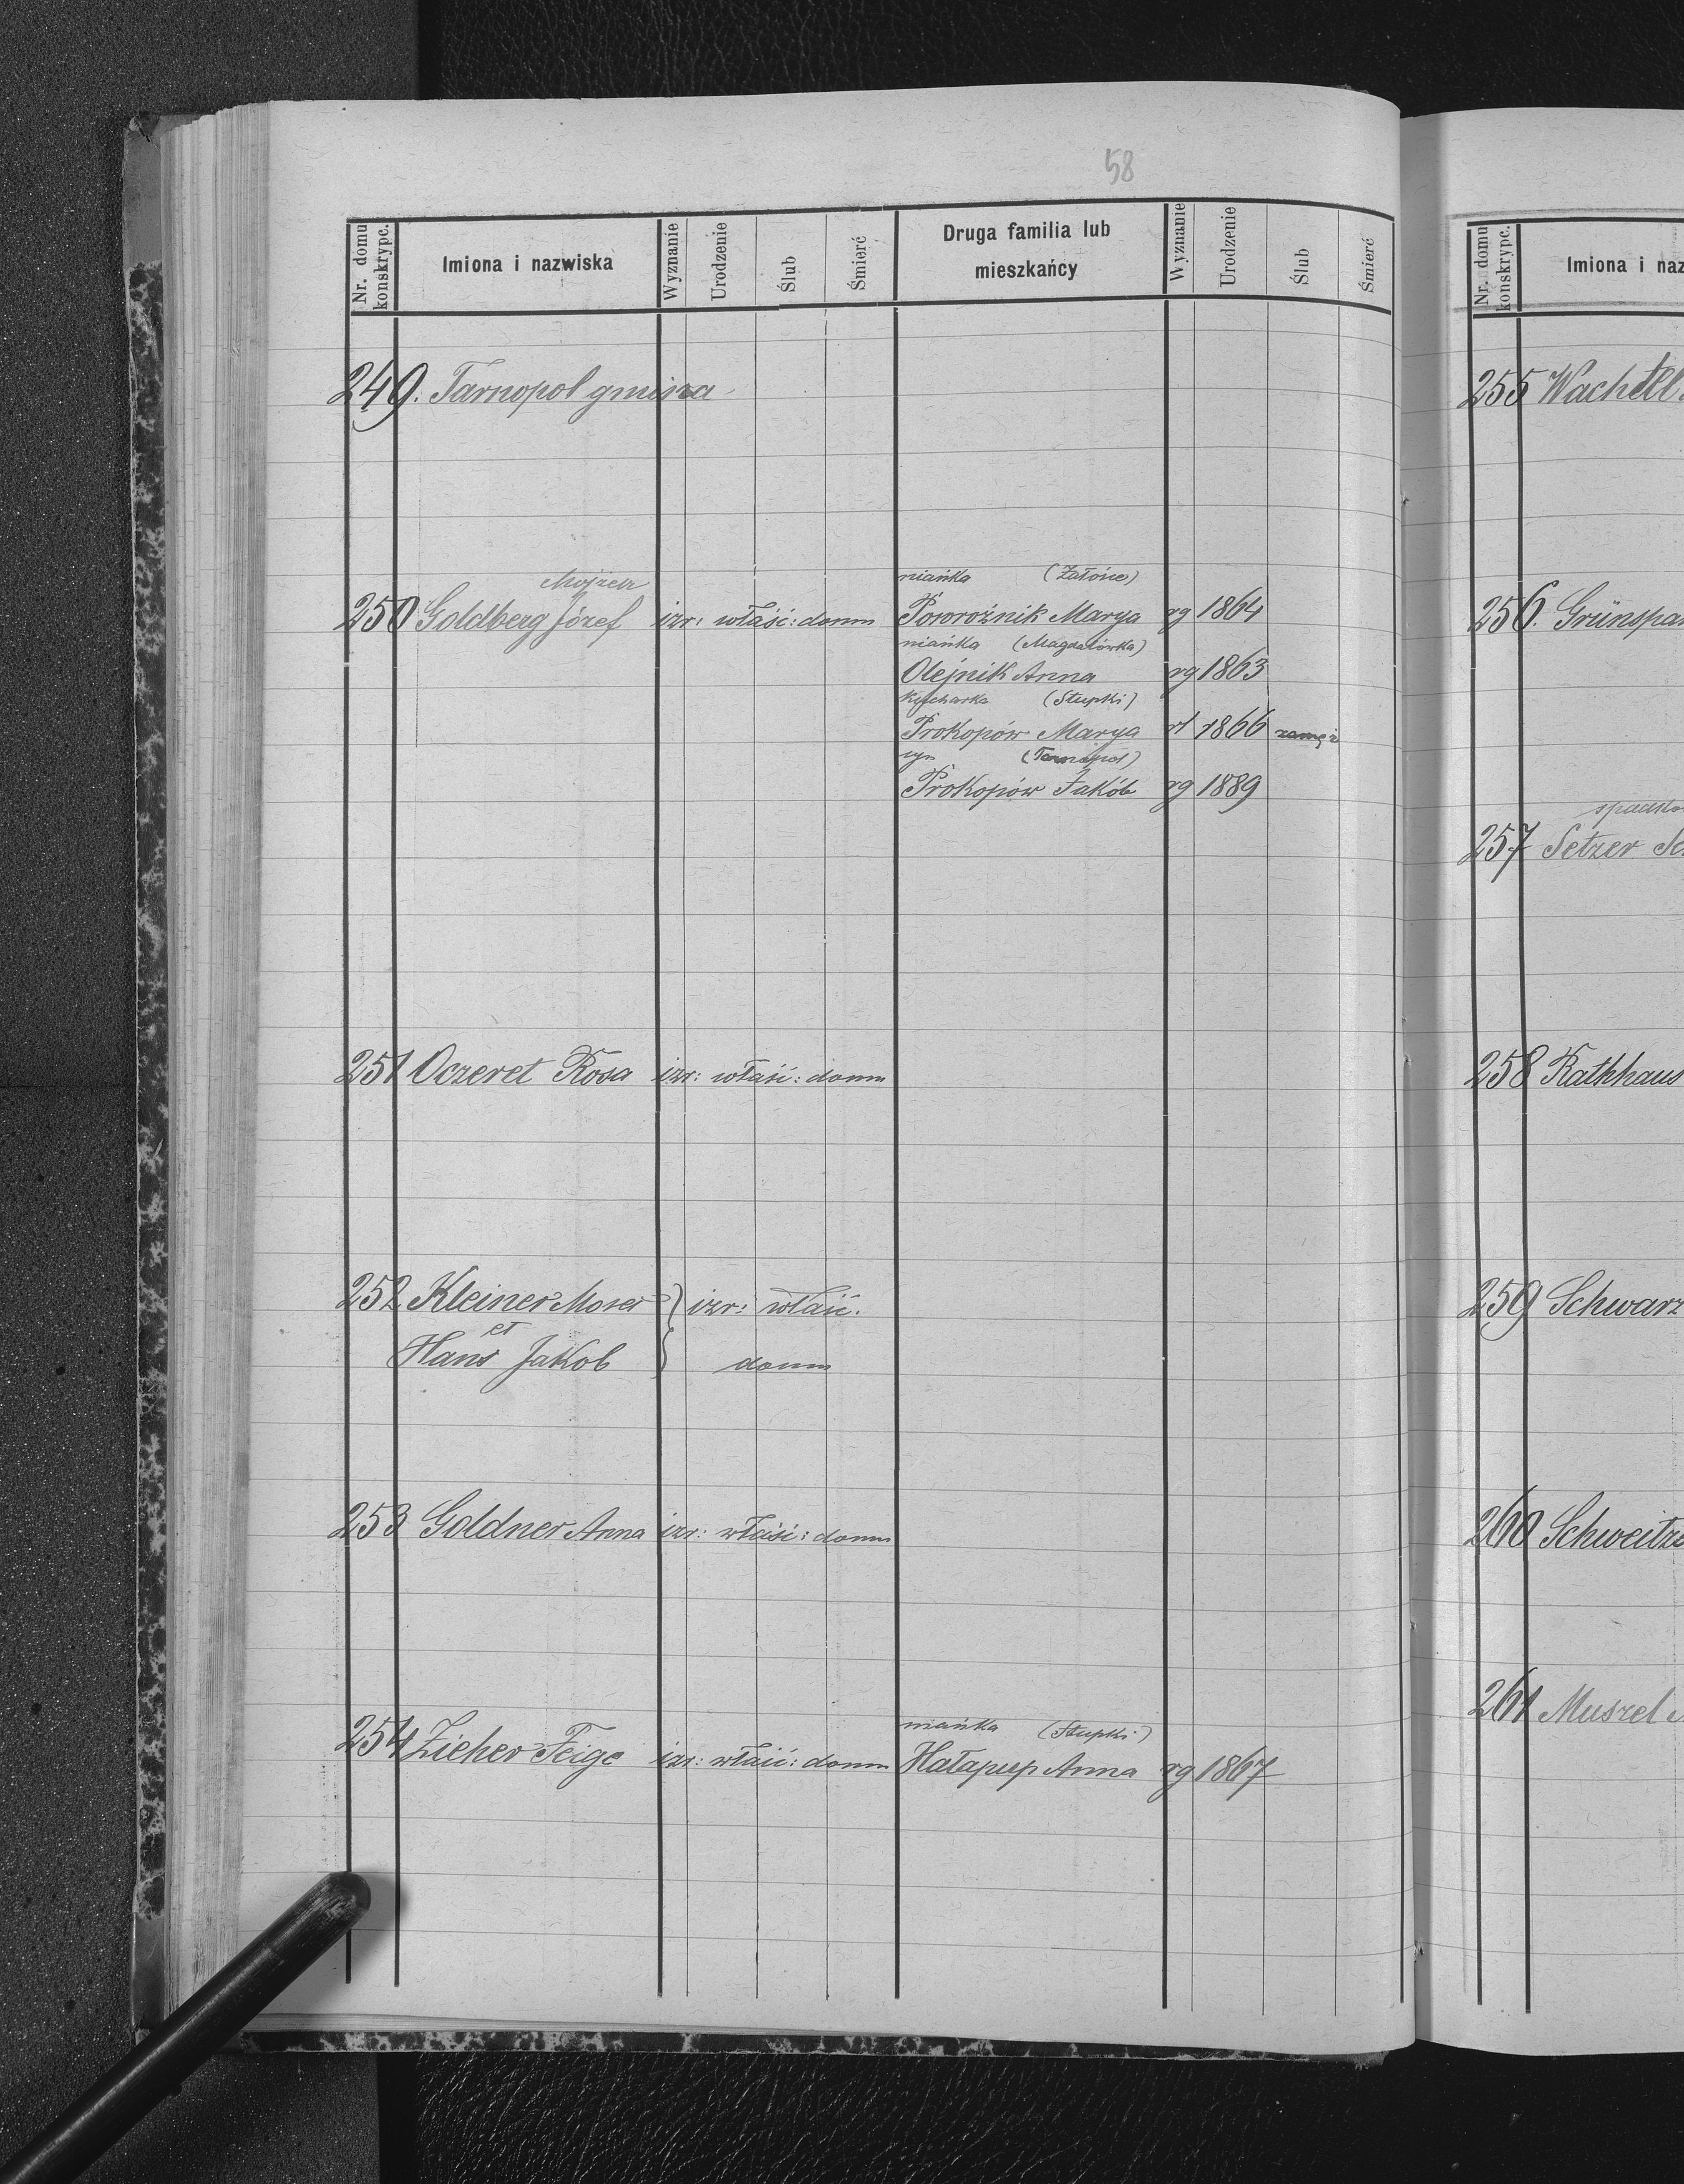 58
Nr. domu konskrypc.
Imiona i nazwiska
Wyznanie
Urodzenie
Ślub
Śmierć
Druga familia lub mieszkańcy
Wyznanie
Urodzenie
Ślub
Śmierć
249. Tarnopol gmina
Mojżesz
250 Goldberg Józef izr: właść: domu
nianka (Załośce)
Poworoźnik Marya rg 1864
nianka (Magdalówka)
Olejnik Anna rg 1863
kucharka (Stupki)
Prokopów Marya rł 1866 zamęż
syn (Tarnopol)
Prokopów Jakób rg 1889
251 Oczeret Rosa izr: właść: domu
252 Kleiner Moses } izr: właść:
et
Hans Jakob } domu
253 Goldner Anna izr: właść: domu
nianka (Stupki)
254 Zieher Feige izr: właść: domu Hałapup Anna rg 1867
Nr. domu konskrypc.
Imiona i naz
255 Wachtel
256. Grünspa
spadko
257 Setzer Sc
258 Rathhaus
259 Schwarz
260 Schweitze
261 Muszel